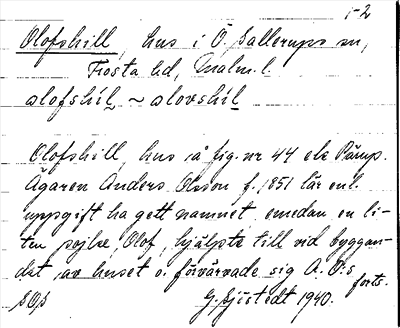 1-2
Olofshill, hus i Ö. Sallerups sn,
Frosta hd, Malm. l.
olofshíl ~ olovshíl
Olofshill, hus å fig. nr 44 ek Pärup.
Ägaren Anders Olsson f. 1851 lär enl.
uppgift ha gett namnet emedan en li-
ten pojke, Olof, hjälpte till vid byggan-
det av huset o. förvärvade sig A. O:s
forts.
G. Sjöstedt 1940.